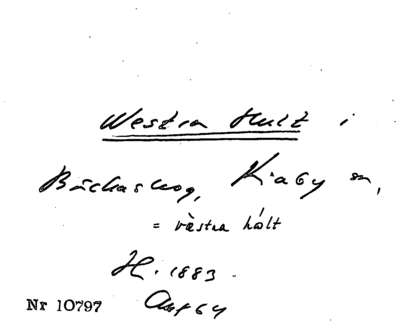 Westra Hult i
Bäckaskog, Kiaby sn,
= västra hólt
H. 1883.
Nr 10797